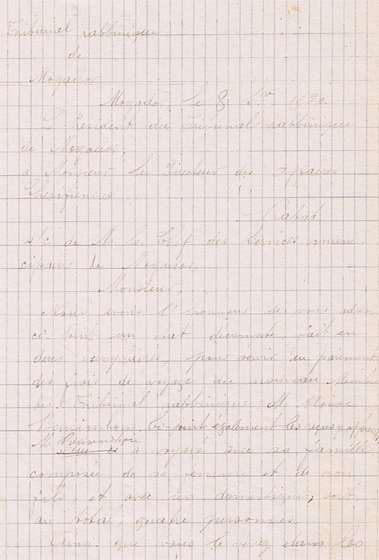 Tribunal rabbinique
de
Mogador
Mogador, le 8 1920.
Le Président du Tribunal rabbinique
de Mogador,
à Monsieur le Directeur des Affaires
Chérifiennes
Rabat
s/c de M. le Chef des Services muni
cipaux de Mogador.
Monsieur,
Nous avons l'honneur de vous adres
ci joint un état décompte, fait en
deux exemplaires, pour servir au paiement
des frais de voyage au nouveau Membre
du Tribunal rabbinique M. Moïse
Bensimhon. Ce joint également les reçus
M. Bensimhon
a voyagé avec sa famille
composée de sa femme et de son
fils et avec sa domestique, soit
au total quatre personnes.
Ainsi que vous le verrez dans les